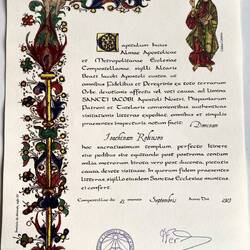 Capitulum huius
Almae Apostolicae
et Metropolitanae Ecclesiae
Compostellanae, sigilli Altaris
Beati Iacobi Apostoli custos, ut
omnibus Fidelibus et Peregrinis ex toto terrarum
Orbe, devotionis affectu vel voti causa, ad limina
SANCTI IACOBI Apostoli Nostri, Hispaniarum
Patroni et Tutelaris convenientibus, authenticas
visitationis litteras expediat, omnibus et singulis
praesentes inspecturis notum facit:
Robinson
hoc sacratissimum templum, perfecto itinere
sive pedibus sive equitando post postrema centum
milia metrorum, birota vero post ducenta, pietatis
causa, devote visitasse. In quorum fidem praesentes
litteras sigillo eiusdem Sanctae Ecclesiae munitas
ei confert.
Compostellae die Septembris Anno Dni